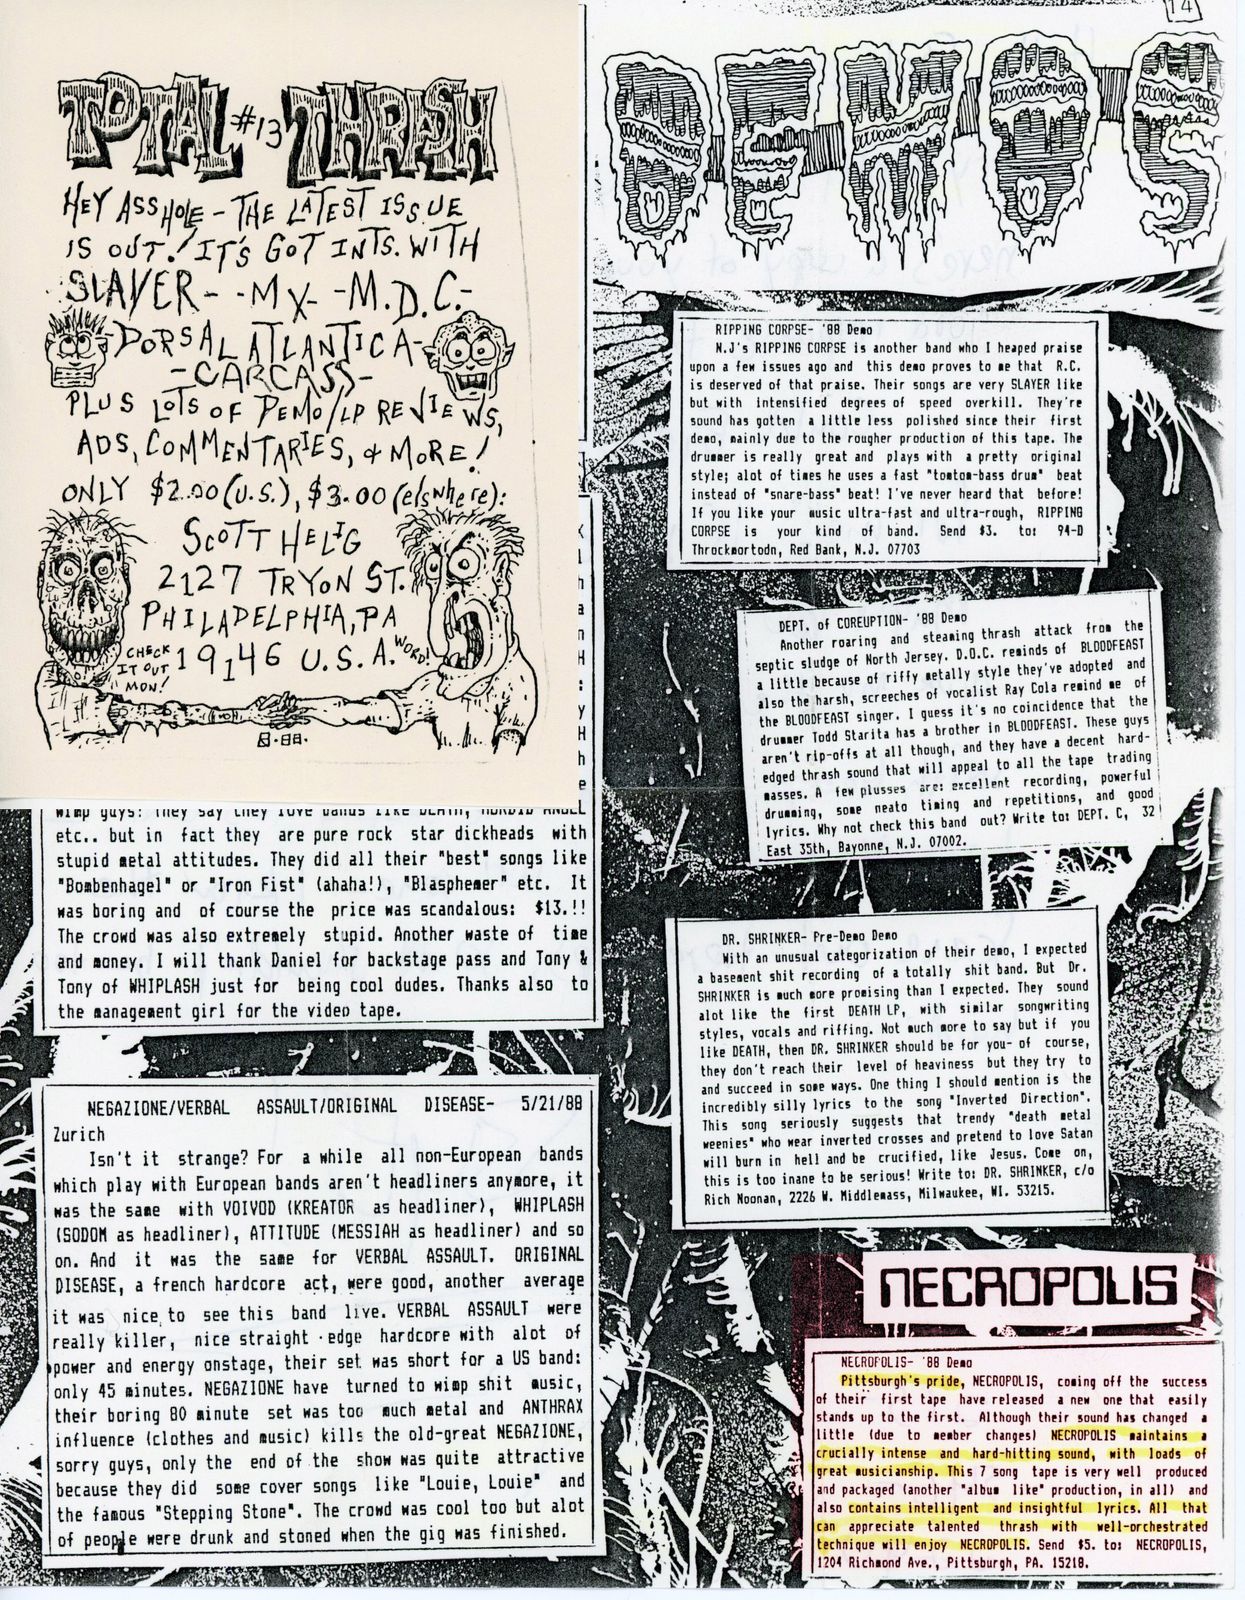 TOTAL #13 THRASH
HEY ASSHOLE - THE LATEST ISSUE
IS OUT! IT'S GOT INTS. WITH
SLAYER- -MX- -M.D.C.-
-DORSAL ATLANTICA-
-CARCASS-
PLUS LOTS OF DEMO/LP REVIEWS,
ADS, COMMENTARIES, & MORE!
ONLY $2.00 (U.S.), $3.00 (elswhere):
SCOTT HELIG
2127 TRYON ST.
PHILADELPHIA, PA
19146 U.S.A.
CHECK
IT OUT
MON!
WORD!
.88.
wimp guys! They say they love bands like DEATH, MORBID ANGEL
etc.. but in fact they are pure rock star dickheads with
stupid metal attitudes. They did all their "best" songs like
"Bombenhagel" or "Iron Fist" (ahaha!), "Blasphemer" etc. It
was boring and of course the price was scandalous: $13.!!
The crowd was also extremely stupid. Another waste of time
and money. I will thank Daniel for backstage pass and Tony &
Tony of WHIPLASH just for being cool dudes. Thanks also to
the management girl for the video tape.
NEGAZIONE/VERBAL ASSAULT/ORIGINAL DISEASE- 5/21/88
Zurich
Isn't it strange? For a while all non-European bands
which play with European bands aren't headliners anymore, it
was the same with VOIVOD (KREATOR as headliner), WHIPLASH
(SODOM as headliner), ATTITUDE (MESSIAH as headliner) and so
on. And it was the same for VERBAL ASSAULT. ORIGINAL
DISEASE, a french hardcore act, were good, another average
it was nice to see this band live. VERBAL ASSAULT were
really killer, nice straight edge hardcore with alot of
power and energy onstage, their set was short for a US band:
only 45 minutes. NEGAZIONE have turned to wimp shit music,
their boring 80 minute set was too much metal and ANTHRAX
influence (clothes and music) kills the old-great NEGAZIONE,
sorry guys, only the end of the show was quite attractive
because they did some cover songs like "Louie, Louie" and
the famous "Stepping Stone". The crowd was cool too but alot
of people were drunk and stoned when the gig was finished.
14
DEMOS
RIPPING CORPSE- '88 Demo
N.J's RIPPING CORPSE is another band who I heaped praise
upon a few issues ago and this demo proves to me that R.C.
is deserved of that praise. Their songs are very SLAYER like
but with intensified degrees of speed overkill. They're
sound has gotten a little less polished since their first
demo, mainly due to the rougher production of this tape. The
drummer is really great and plays with a pretty original
style; alot of times he uses a fast "tomtom-bass drum" beat
instead of "snare-bass" beat! I've never heard that before!
If you like your music ultra-fast and ultra-rough, RIPPING
CORPSE is your kind of band. Send $3. to: 94-D
Throckmortodn, Red Bank, N.J. 07703
DEPT. of COREUPTION- '88 Demo
Another roaring and steaming thrash attack from the
septic sludge of North Jersey. D.O.C. reminds of BLOODFEAST
a little because of riffy metally style they've adopted and
also the harsh, screeches of vocalist Ray Cola remind me of
the BLOODFEAST singer. I guess it's no coincidence that the
drummer Todd Starita has a brother in BLOODFEAST. These guys
aren't rip-offs at all though, and they have a decent hard-
edged thrash sound that will appeal to all the tape trading
masses. A few plusses are: excellent recording, powerful
drumming, some neato timing and repetitions, and good
lyrics. Why not check this band out? Write to: DEPT. C, 32
East 35th, Bayonne, N.J. 07002.
DR. SHRINKER- Pre-Demo Demo
With an unusual categorization of their demo, I expected
a basement shit recording of a totally shit band. But Dr.
SHRINKER is much more promising than I expected. They sound
alot like the first DEATH LP, with similar songwriting
styles, vocals and riffing. Not much more to say but if you
like DEATH, then DR. SHRINKER should be for you- of course,
they don't reach their level of heaviness but they try to
and succeed in some ways. One thing I should mention is the
incredibly silly lyrics to the song "Inverted Direction".
This song seriously suggests that trendy "death metal
weenies" who wear inverted crosses and pretend to love Satan
will burn in hell and be crucified, like Jesus. Come on,
this is too inane to be serious! Write to: DR. SHRINKER, c/o
Rich Noonan, 2226 W. Middlemass, Milwaukee, WI. 53215.
NECROPOLIS
NECROPOLIS- '88 Demo
Pittsburgh's pride, NECROPOLIS, coming off the success
of their first tape have released a new one that easily
stands up to the first. Although their sound has changed a
little (due to member changes) NECROPOLIS maintains a
crucially intense and hard-hitting sound, with loads of
great musicianship. This 7 song tape is very well produced
and packaged (another "album like" production, in all) and
also contains intelligent and insightful lyrics. All that
can appreciate talented thrash with well-orchestrated
technique will enjoy NECROPOLIS. Send $5. to: NECROPOLIS,
1204 Richmond Ave., Pittsburgh, PA. 15218.